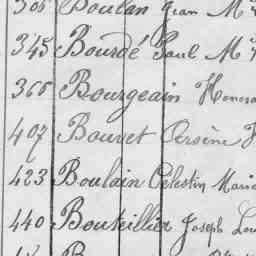 306 Boulan Jean M
345 Bourdé Paul M
366 Bourgeain Honoré
407 Bouvet Arsène
423 Boulain Célestin Marie
440 Bouteillier Joseph Lou